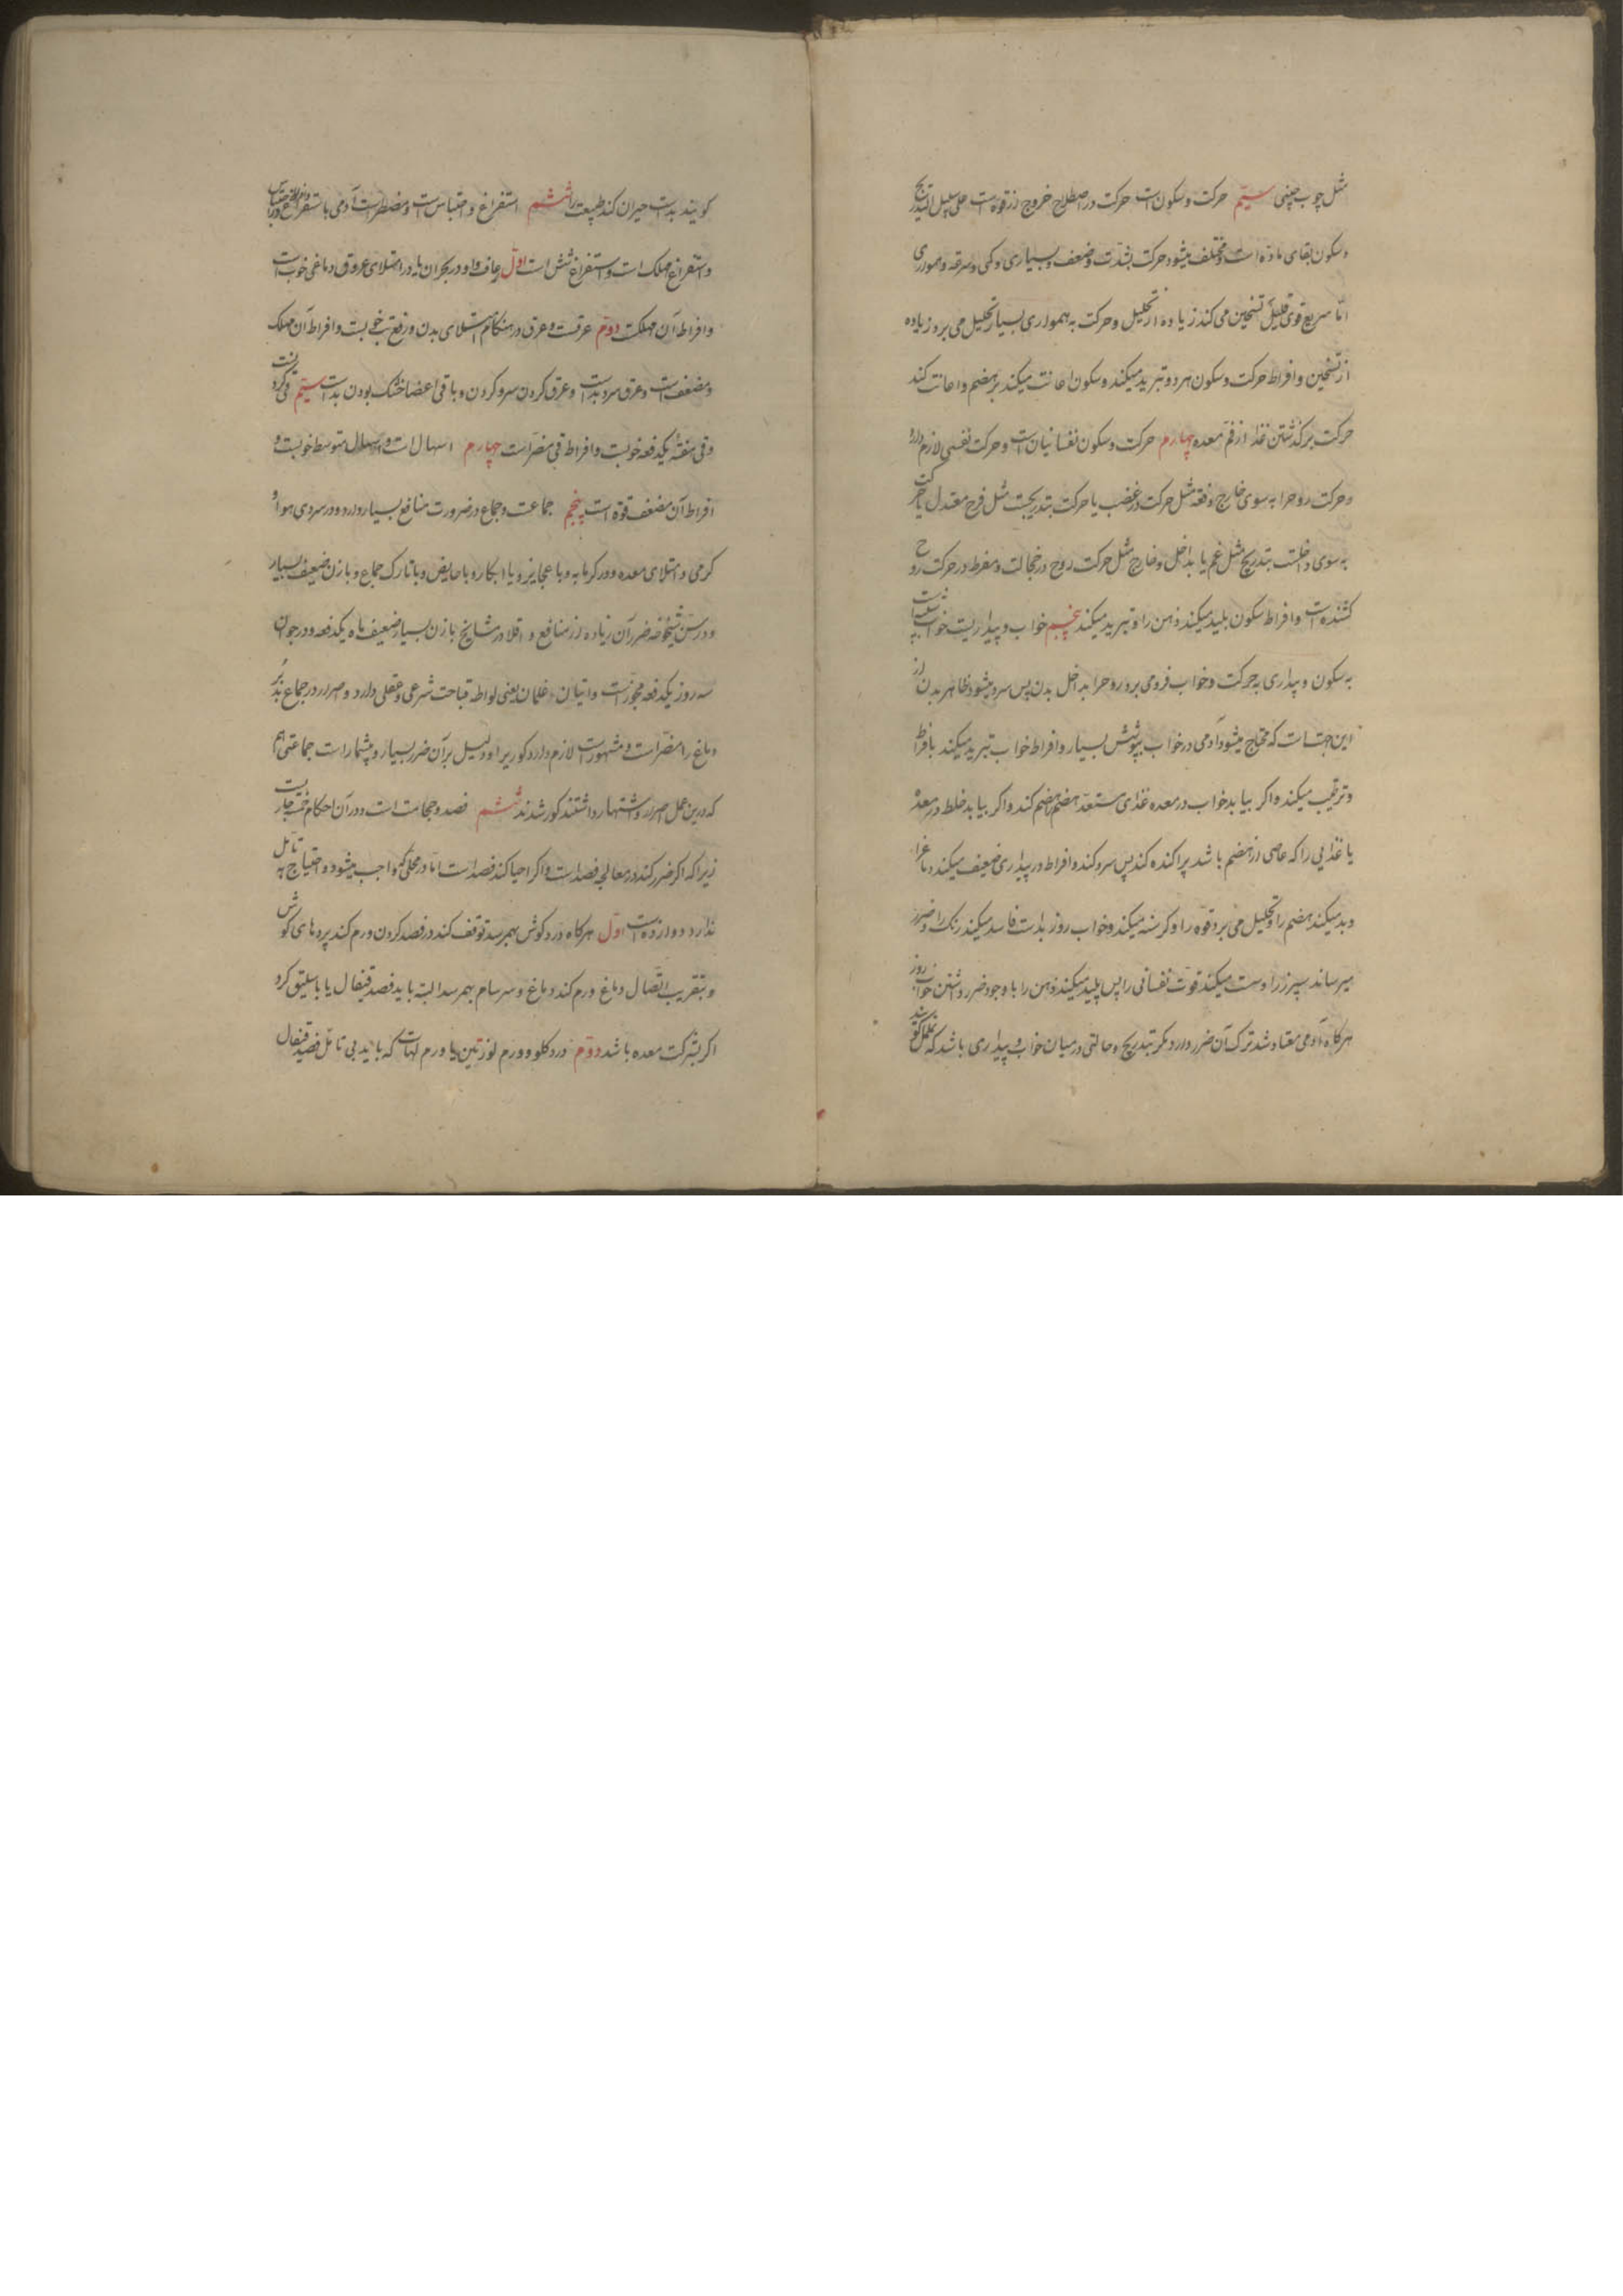 مثل چوب چینی سیّم حرکت و سکون است حرکت در اصطلاح خروج از قوه است علی سبیل التدریج
و سکون بقای ماده است و مختلف میشود حرکت بشدّت و ضعف و بسیاری و کمی و سرعه و همواری
امّا سریع قوی قلیل تسخین می کند زیاده از تحلیل و حرکت به همواری بسیار تحلیل می برد زیاده
از تسخین و افراط حرکت و سکون هر دو تبرید میکند و سکون اعانت میکند بر هضم و اعانت کند
حرکت بر گذشتن غذا از فم معده چهارم حرکت و سکون نفسانیان است و حرکت نفسی لازم دارد
و حرکت روحرا به سوی خارج دفعة مثل حرکت در غضب یا حرکت بتدریجست مثل فرح معتدل یا حرکت
به سوی داخلست بتدریج مثل غم یا بداخل و خارج مثل حرکت روح در خجالت و مفرط در حرکت روح
کشنده است و افراط سکون بلید میکند ذهن را و تبرید میکند پنجم خواب و بیداریست خواب
به سکون و بیداری به حرکت و خواب فرو می برد روحرا بداخل بدن پس سرد میشود ظاهر بدن از
این جهتست که محتاج میشود آدمی در خواب بپوشش بسیار و افراط خواب تبرید میکند بافراط
و ترطیب میکند و اگر بیابد خواب در معده غذای مستعد هضم هضم کند و اگر بیابد خلط در معده
یا غذایی را که عاصی از هضم باشد پراکنده کند پس سرد کند و افراط در بیداری ضعیف میکند دماغرا
و بد میکند هضم را و تحلیل می برد قوه را و گرسنه میکند و خواب روز بداست فاسد میکند رنگ را و ضرر
میرساند سپرز را و سست میکند قوّت نفسانی را پس بلید میکند ذهن را با وجود ضرر داشتن خواب روز
هرگاه آدمی معتاد شد ترک آن ضرر دارد مگر بتدریج و حالتی در میان خواب و بیداری باشد که تململ گویند
گویند بد است حیران کند طبیعت را ششم استفراغ و احتباس است و مضطر است آدمی باستفراغ
و استفراغ مهلک است و استفراغ شش است اوّل رعاف و او در بحران ها و در امتلای عروق دماغی خوب است
و افراط آن مهلکست دوّم عرقست و عرق در هنگام امتلای بدن و رفع تب خوبست و افراط آن مهلک
و مضعف است و عرق سرد بد است و عرق کردن سر و گردن و باقی اعضا خشک بودن بد است سیّم قی کردنست
و قی هفتهٔ یکدفعه خوبست و افراط قی مضر است چهارم اسهال است و اسهال متوسط خوبست و
افراط آن مضعف قوّه است پنجم جماعست و جماع در ضرورت منافع بسیار دارد و در سردی هوا و
گرمی و امتلای معده و در گرمابه و با عجایز و با ابکار و با حایض و با تارک جماع و با زن ضعیف بسیار
و در سن شیخوخه ضرر آن زیاده از منافع و اقلا در مشایخ با زن بسیار ضعیف ماه یکدفعه و در جوان
سه روز یکدفعه مجوّز است و اتیان غلمان یعنی لواطه قباحت شرعی و عقلی دارد و اصرار در جماع بدبر
دماغ را مضر است و مشهور است لازم دارد کوریرا و دلیل بر آن ضرر بسیار و بیشمار است جماعتی هم
که درین عمل اصرار و اشتهار داشتند کور شدند ششم فصد و حجامت است و در آن احکام
زیرا که اگر ضرر کند در معالجه فصد است و اگر احیا کند فصد است امّا در محلی که واجب میشود و احتیاج به تأمّل
ندارد دوازده است اوّل هرگاه درد گوش بهمرسد توقف کند در فصد کردن ورم کند پردهای گوش
و بتقریب اتصال دماغ ورم کند دماغ و سرسام بهمرسد البته باید فصد قیفال یا باسلیق کرد
اگر بشرکت معده باشد دوّم درد گلو و ورم لوزتین یا ورم لهات که باید بی تامّل فصد قیفال